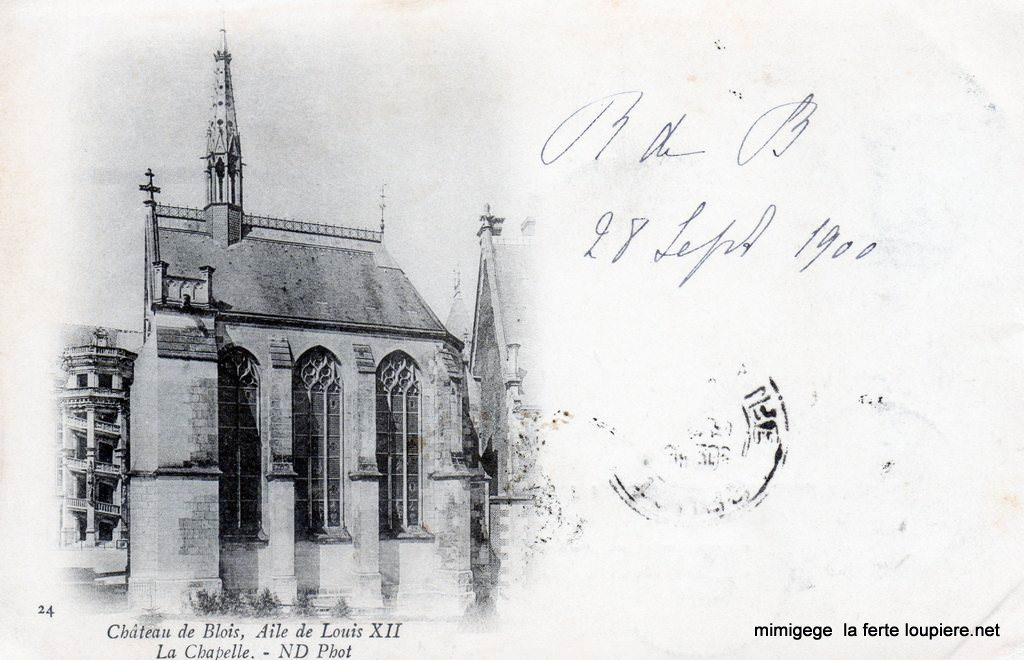 R de B
28 Sept 1900
24
Château de Blois, Aile de Louis XII
La Chapelle. - ND Phot
mimigege la ferte loupiere.net